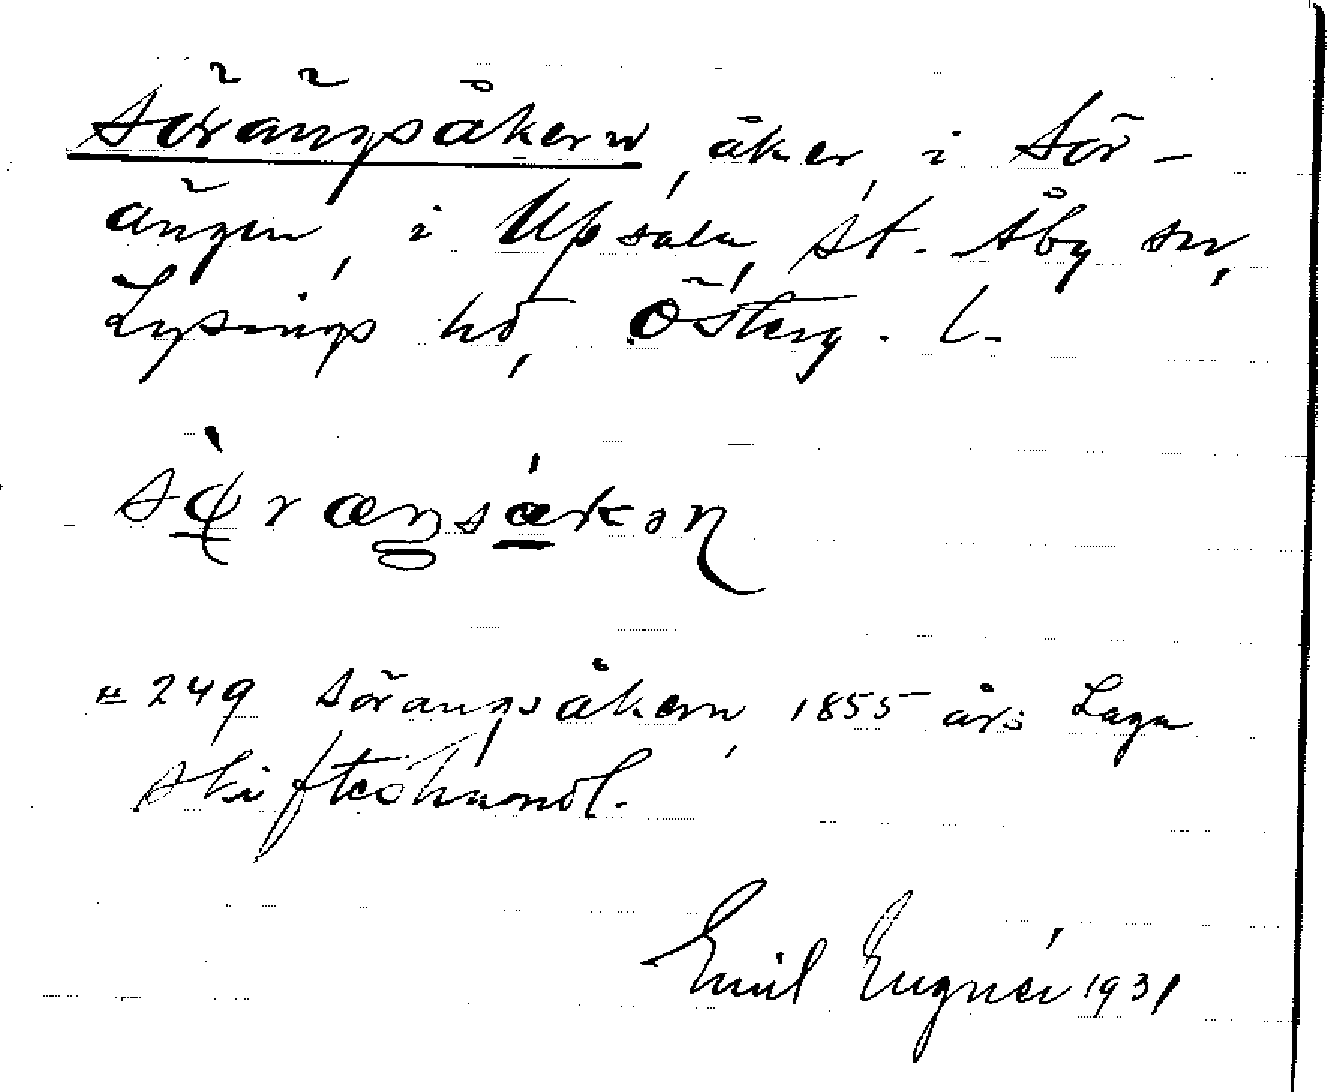 Sörängsåkern, åker, i Sör-
ängen, i Upsala, St. Åby sn,
Lysings hd, Österg. l.
= 249 Sörängsåkern, 1855 års Laga
skifteshandl.
Emil Eugnér 1931